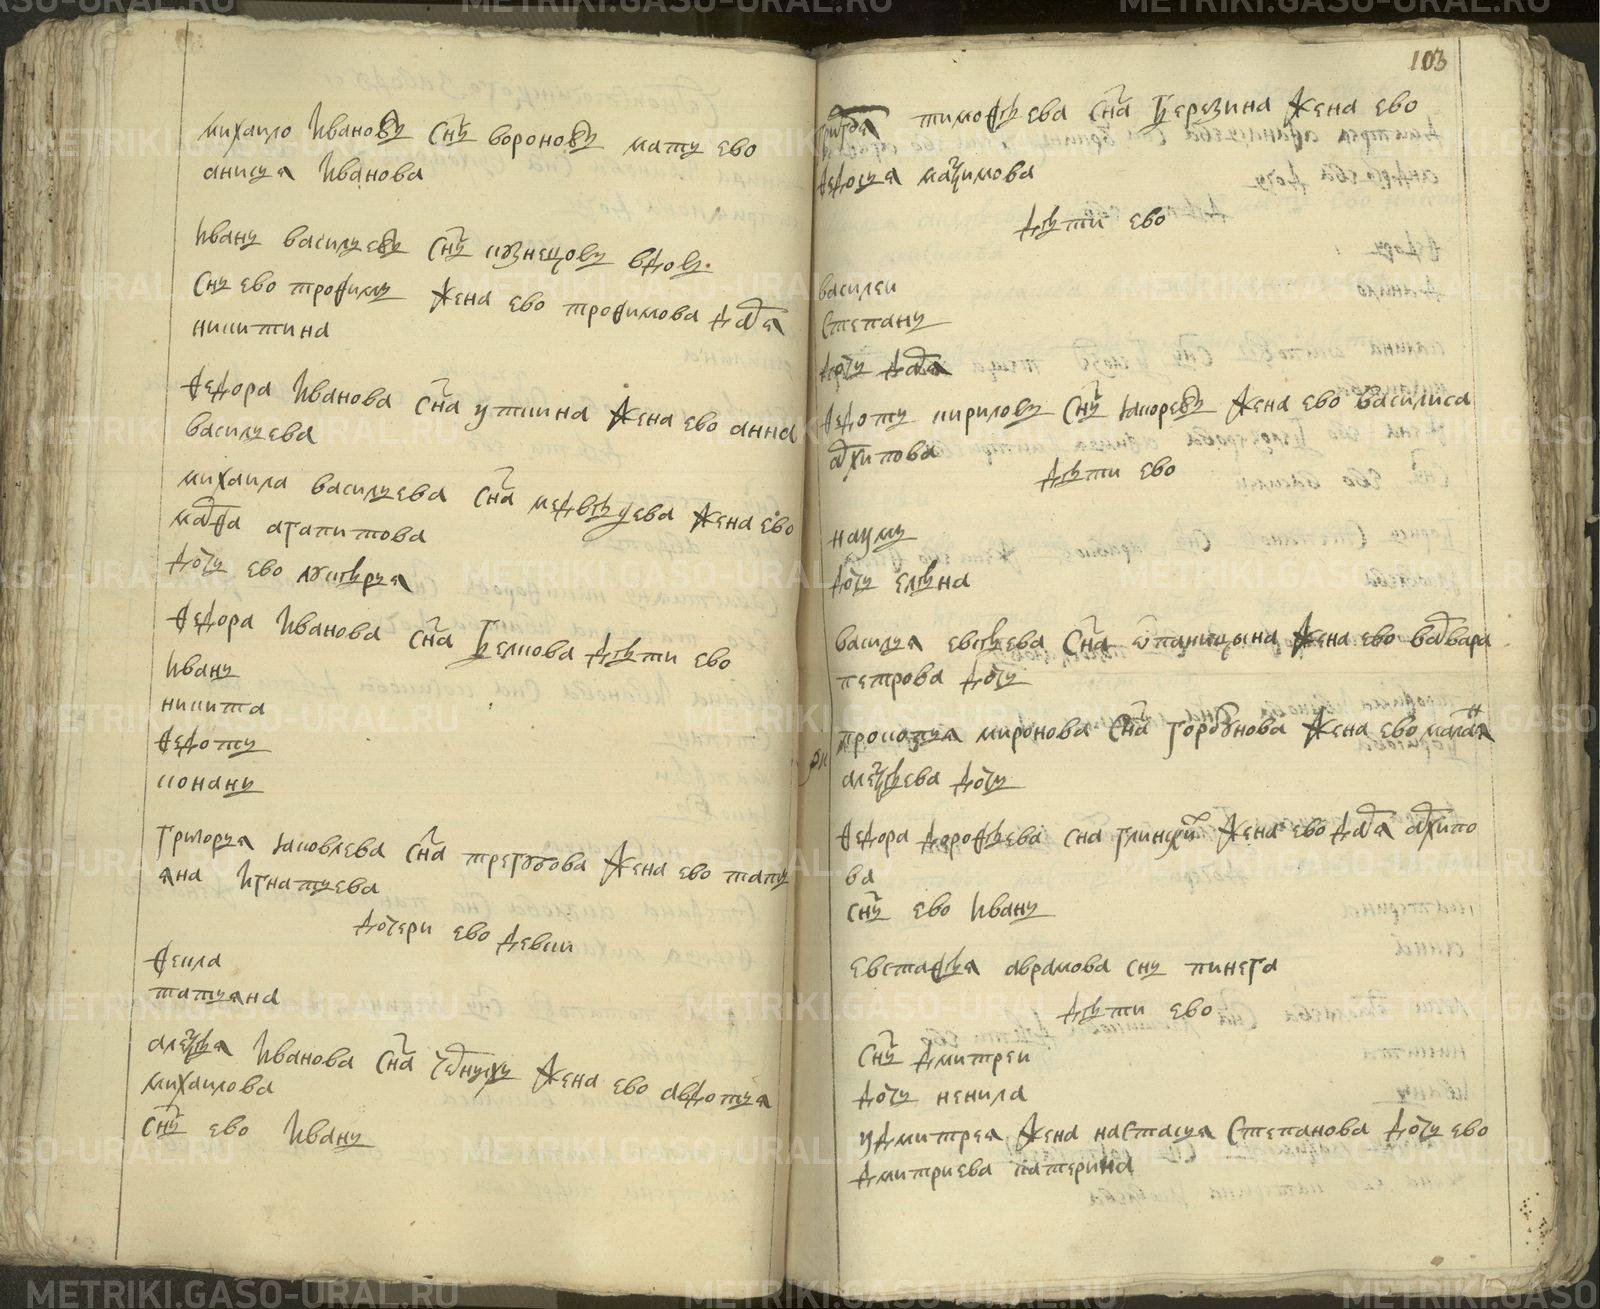 михаило Ивановъ снъ вороновъ мать ево
анисья Иванова
Иванъ васильевъ снъ кузнецовъ вдовъ
снъ ево трофимъ жена ево трофимова даря
никитина
федора Иванова сна уткина жена ево анна
васильева
михаила васильева сна медвѣдева жена ево
марфа агапитова
дочь ево лукѣрья
федора Иванова сна бѣлкова дѣти ево
Иванъ
никита
федотъ
конанъ
григорья яковлева сна трегубова жена ево тать
яна Игнатьева
дочери ево девки
фекла
татьяна
алеѯѣя Иванова сна жена ево авдотья
михаилова
снъ ево Иванъ
103
тимофѣева сна березина жена ево
федосья маѯимова
дѣти ево
василеи
степанъ
дочь даря
федотъ кириловъ снъ жена ево василиса
архипова
дѣти ево
наумъ
дочь елѣна
василья евсѣева сна жена ево варвара
петрова дочь
прокопья миронова сна горбунова жена ево маланя
алеѯѣева дочь
федора дорофѣева сна глинских жена ево даря архипо
ва
снъ ево Иванъ
евстафья аврамова снъ пинега
дѣти ево
снъ дмитреи
дочь ненила
у дмитрея жена настасья степанова дочь ево
дмитриева катерина
METRIKI.GASO-URAL.RU